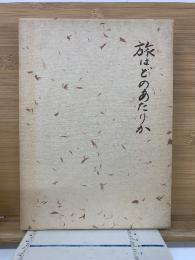 旅はどのあたりか